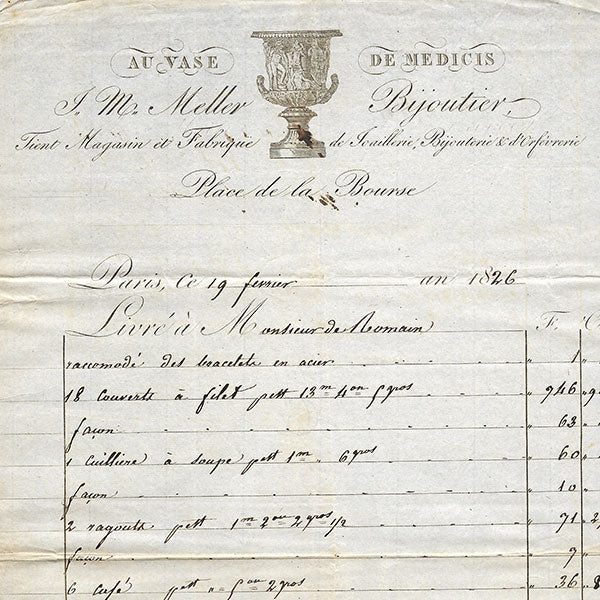 AU VASE DE MEDICIS
J. M. Meller Bijoutier,
Tient Magasin et Fabrique de Joaillerie, Bijouterie & d'Orfévrerie
Place de la Bourse
Paris, Ce 19 fevrier an 1826
Livré à Monsieur de Romain F. C
raccomodé des bracelets en acier " 1 "
18 couverts à filet pest 13m 4on 5gros " 946 9
façon " 63 "
1 cuillière à soupe pest 1m " 6gros " 60
façon " 10 "
2 ragouts pest 1m 2on 2gros 1/2 " 71 2
façon " 9 "
6 café pest " 5on 2gros " 36 8